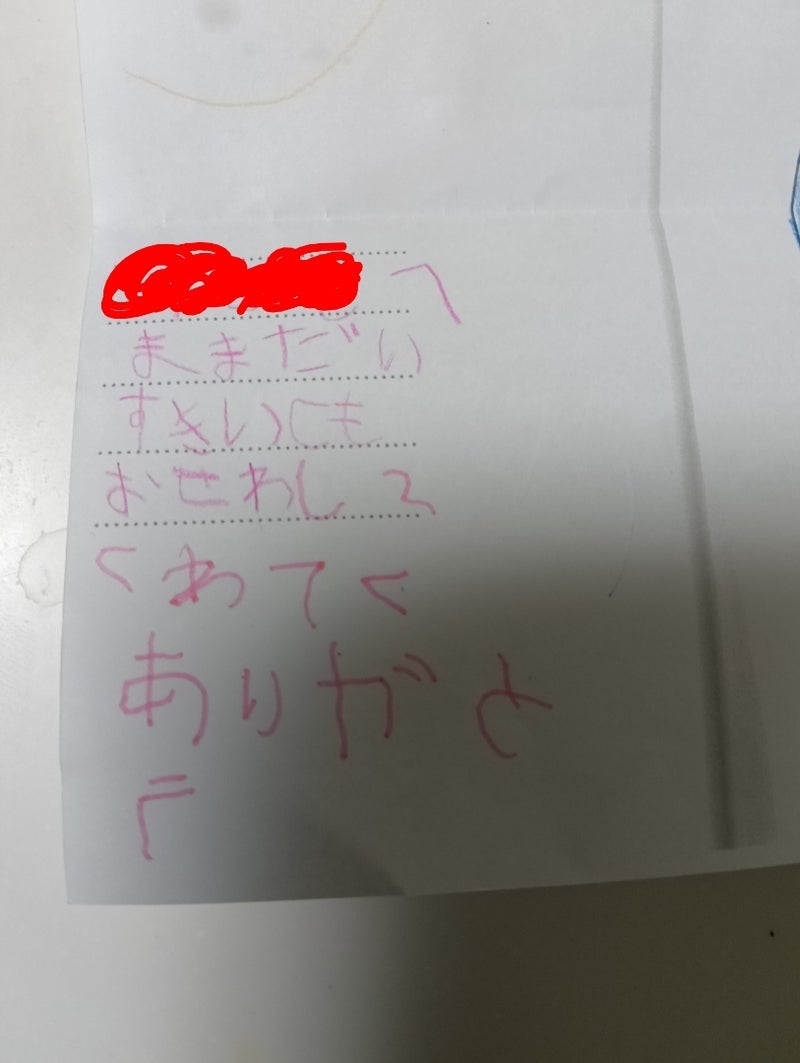 へ
ままだい
すきいにも
おせわして
くわてく
ありがと
う